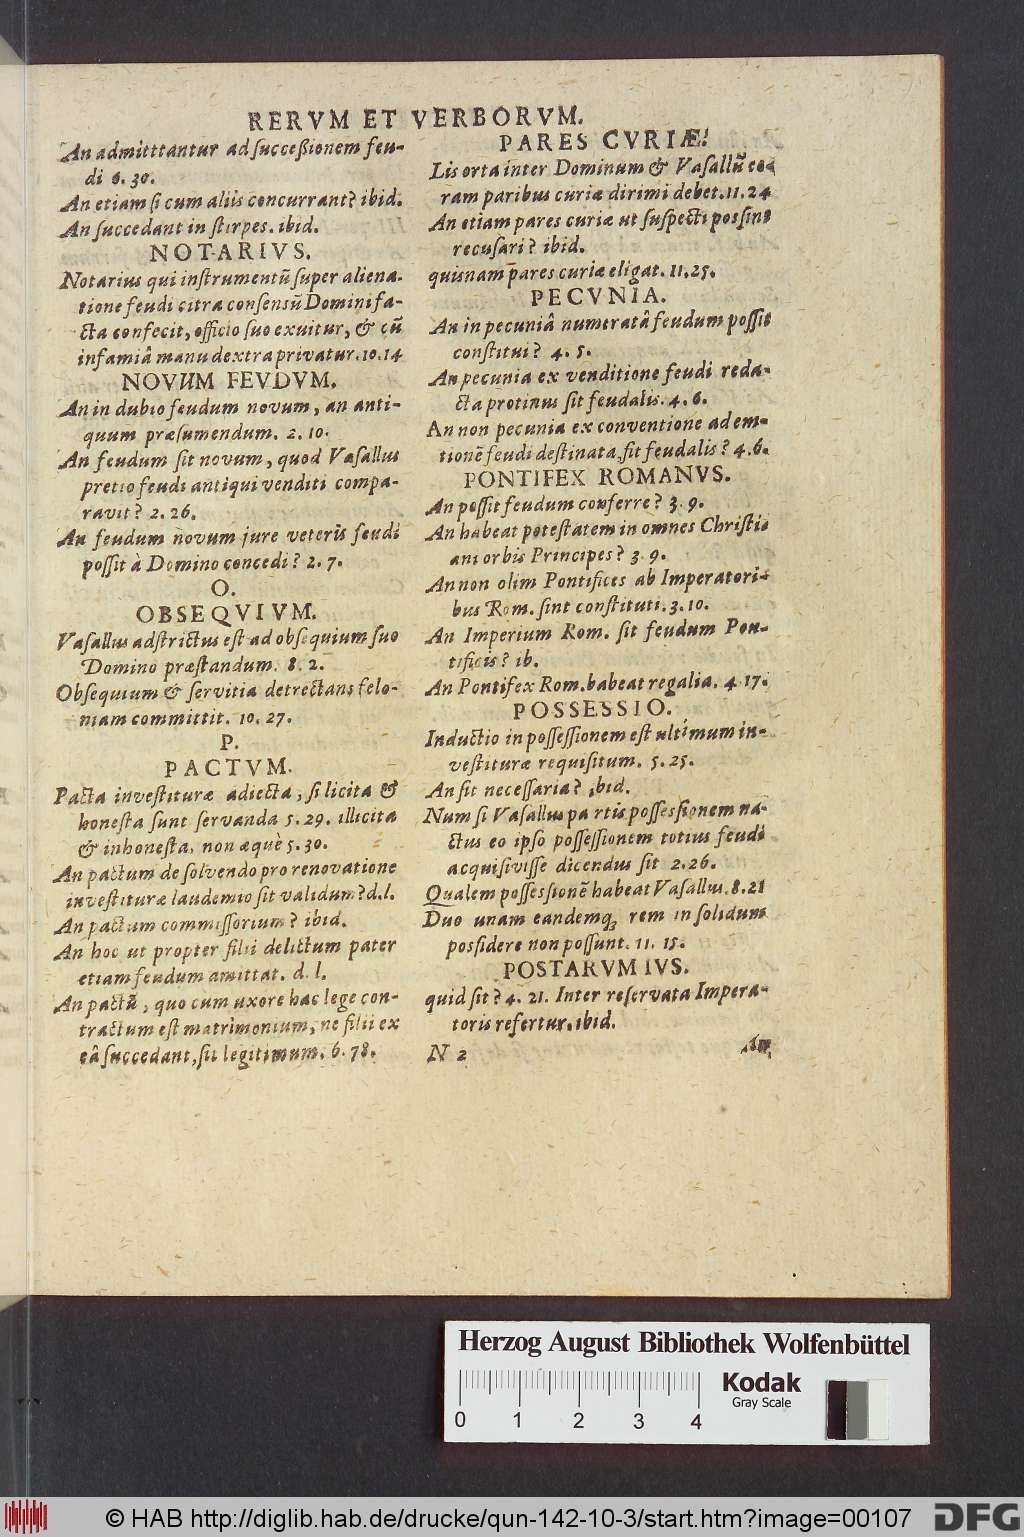 RERVM ET VERBORVM.
An admitttantur ad succeßionem feu-
di 6. 30.
An etiam si cum aliis concurrant? ibid.
An succedant in stirpes. ibid.
NOTARIVS.
Notarius qui instrumentũ super aliena-
tione feudi citra consensũ Domini fa-
cta confecit, officio suo exuitur, & cũ
infamiâ manu dextra privatur. 10. 14
NOVUM FEVDVM.
An in dubio feudum novum, an anti-
quum præsumendum. 2. 10.
An feudum sit novum, quod Vasallus
pretio feudi antiqui venditi compa-
ravit? 2. 26.
An feudum novum jure veteris feudi
possit à Domino concedi? 2. 7.
O.
OBSEQVIVM.
Vasallus adstrictus est ad obsequium suo
Domino præstandum. 8. 2.
Obsequium & servitia detrectans felo-
niam committit. 10. 27.
P.
PACTVM.
Pacta investituræ adiecta, si licita &
honesta sunt servanda 5. 29. illicita
& inhonesta, non æquè 5. 30.
An pactum de solvendo pro renovatione
investituræ laudemio sit validum? d. l.
An pactum commissorium? ibid.
An hoc ut propter filii delictum pater
etiam feudum amittat. d. l.
An pactũ, quo cum uxore hac lege con-
tractum est matrimonium, ne filii ex
eâ succedant, sit legitimum. 6. 78.
PARES CVRIÆ.
Lis orta inter Dominum & Vasallũ co-
ram paribus curiæ dirimi debet. 11. 24
An etiam pares curiæ ut suspecti possint
recusari? ibid.
quisnam pares curiæ eligat. 11. 25.
PECVNIA.
An in pecuniâ numeratâ feudum possit
constitui? 4. 5.
An pecunia ex venditione feudi reda-
cta protinus sit feudalis. 4. 6.
An non pecunia ex conventione ad em-
tionẽ feudi destinata, sit feudalis? 4. 6.
PONTIFEX ROMANVS.
An possit feudum conferre? 3. 9.
An habeat potestatem in omnes Christi-
ani orbis Principes? 3. 9.
An non olim Pontifices ab Imperatori-
bus Rom. sint constituti. 3. 10.
An Imperium Rom. sit feudum Pon-
tificis? ib.
An Pontifex Rom. habeat regalia. 4. 17.
POSSESSIO.
Inductio in possessionem est ultimum in-
vestituræ requisitum. 5. 25.
An sit necessaria? ibid.
Num si Vasallus partis possessionem na-
ctus eo ipso possessionem totius feudi
acquisivisse dicendus sit 2. 26.
Qualem possessionẽ habeat Vasallus. 8. 21
Duo unam eandemq; rem in solidum
possidere non possunt. 11. 15.
POSTARVM IVS.
quid sit? 4. 21. Inter reservata Impera-
toris refertur. ibid.
N 2
Herzog August Bibliothek Wolfenbüttel
0 1 2 3 4
Kodak
Gray Scale
© HAB http://diglib.hab.de/drucke/qun-142-10-3/start.htm?image=00107
DFG